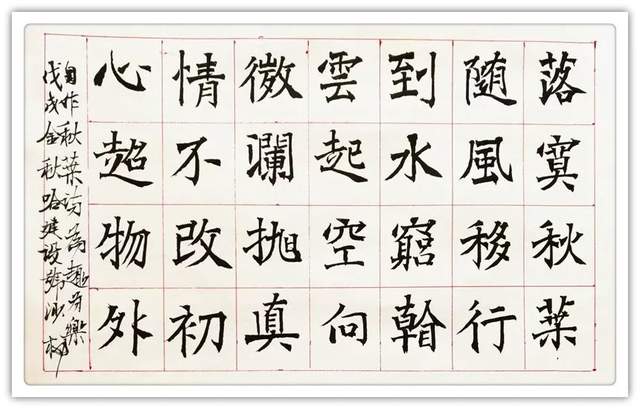 落寞秋葉
随風移行
到水窮
雲起空向
微瀾抛真
情不改初
心超物外
自作秋葉诗為趣為樂
戊戌金秋哈建设